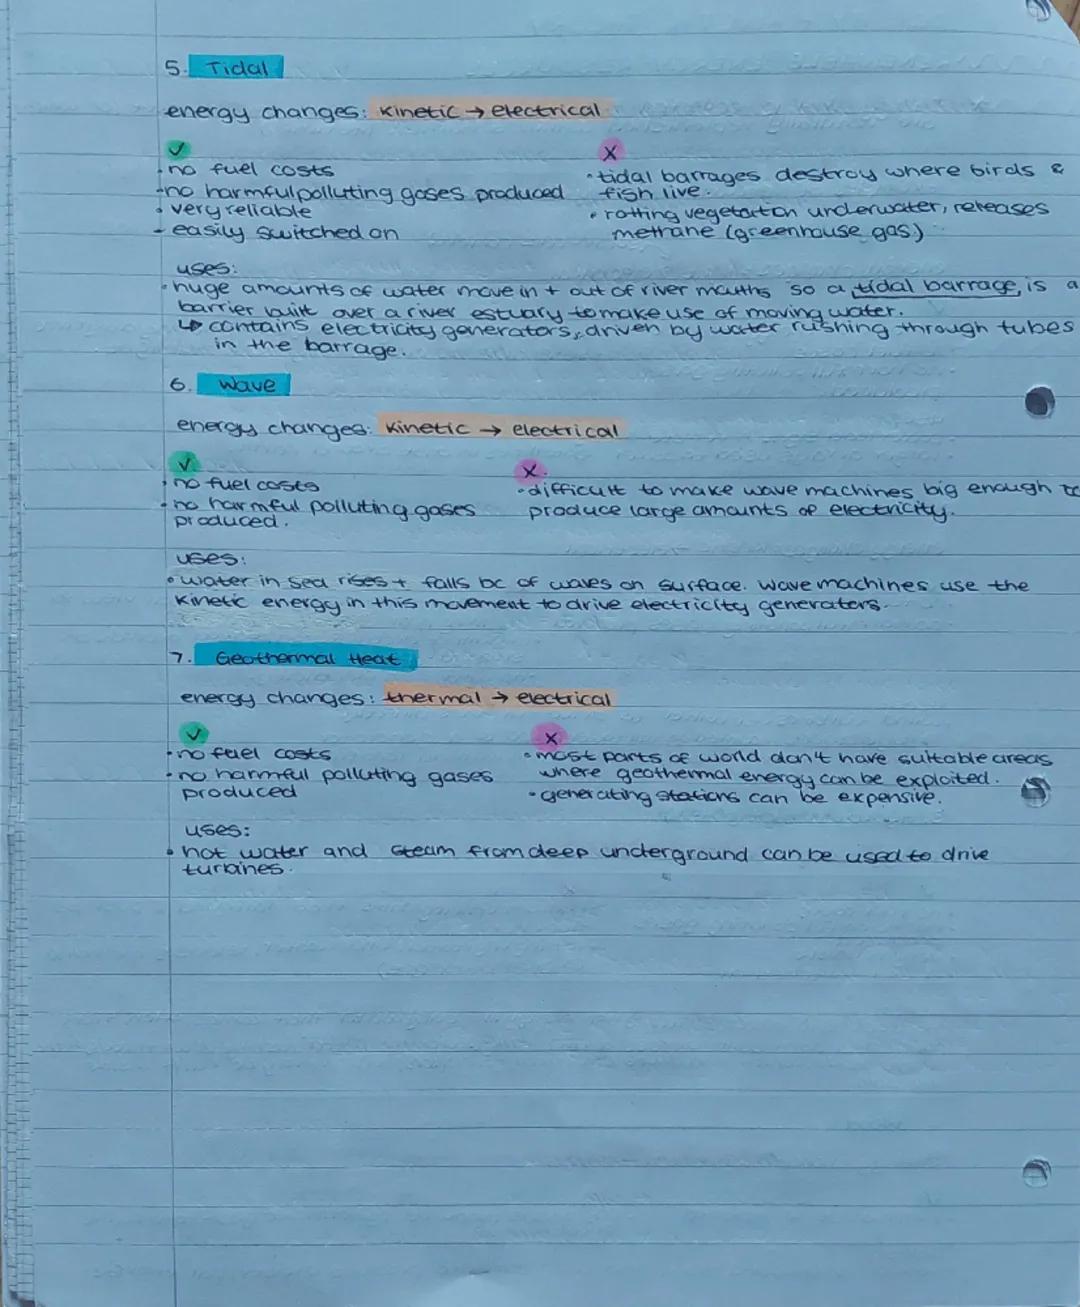 5. Tidal
energy changes: kinetic → electrical
✓
• no fuel costs
• no harmful polluting gases produced
• very reliable
• easily switched on
X
• tidal barrages destroy where birds &
fish live.
• rotting vegetation underwater, releases
methane (greenhouse gas)
uses:
• huge amounts of water move in + out of river mouths so a tidal barrage, is a
barrier built over a river estuary to make use of moving water.
↳ contains electricity generators, driven by water rushing through tubes
in the barrage.
6. Wave
energy changes: kinetic → electrical
✓
• no fuel costs
• no harmful polluting gases
produced.
X
• difficult to make wave machines big enough to
produce large amounts of electricity.
uses:
• water in sea rises + falls bc of waves on surface. wave machines use the
kinetic energy in this movement to drive electricity generators.
7. Geothermal Heat
energy changes: thermal → electrical
✓
• no fuel costs
• no harmful polluting gases
produced
X
• most parts of world don't have suitable areas
where geothermal energy can be exploited.
• generating stations can be expensive.
uses:
• hot water and steam from deep underground can be used to drive
turbines.